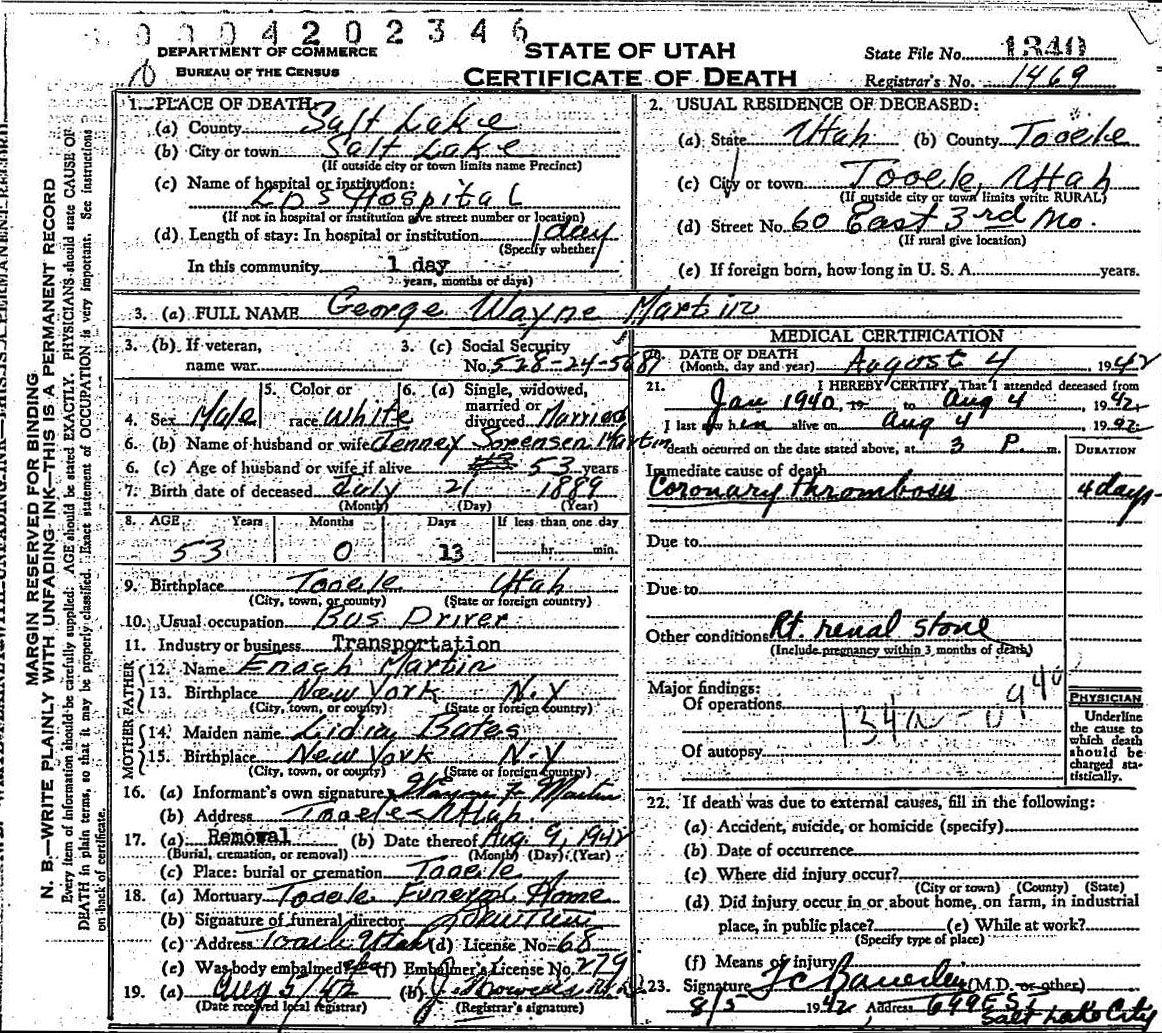 0004202346
DEPARTMENT OF COMMERCE
BUREAU OF THE CENSUS
STATE OF UTAH
CERTIFICATE OF DEATH
State File No. 1340
Registrar's No. 1469
MARGIN RESERVED FOR BINDING
N. B.—WRITE PLAINLY WITH UNFADING INK—THIS IS A PERMANENT RECORD
Every item of information should be carefully supplied. AGE should be stated EXACTLY. PHYSICIANS should state CAUSE OF
DEATH in plain terms, so that it may be properly classified. Exact statement of OCCUPATION is very important. See instructions
on back of certificate.
1. PLACE OF DEATH:
(a) County Salt Lake
(b) City or town Salt Lake
(If outside city or town limits name Precinct)
(c) Name of hospital or institution:
LDS Hospital
(If not in hospital or institution give street number or location)
(d) Length of stay: In hospital or institution 1 day
(Specify whether
In this community 1 day
years, months or days)
2. USUAL RESIDENCE OF DECEASED:
(a) State Utah (b) County Tooele
(c) City or town Tooele, Utah
(If outside city or town limits write RURAL)
(d) Street No. 60 East 3rd No.
(If rural give location)
(e) If foreign born, how long in U. S. A. years.
3. (a) FULL NAME George Wayne Martin
3. (b) If veteran,
name war
3. (c) Social Security
No. 528-24-5689
4. Sex Male
5. Color or
race White
6. (a) Single, widowed,
married or
divorced Married
6. (b) Name of husband or wife Jenney Sorensen Martin
6. (c) Age of husband or wife if alive 53 years
7. Birth date of deceased July 21 1889
(Month) (Day) (Year)
8. AGE Years Months Days If less than one day
53 0 13 hr. min.
9. Birthplace Tooele Utah
(City, town, or county) (State or foreign country)
10. Usual occupation Bus Driver
11. Industry or business Transportation
FATHER
12. Name Enoch Martin
13. Birthplace New York N.Y
(City, town, or county) (State or foreign country)
MOTHER
14. Maiden name Lidia Bates
15. Birthplace New York N.Y
(City, town, or county) (State or foreign country)
16. (a) Informant's own signature Martin
(b) Address Tooele Utah
17. (a) Removal (b) Date thereof Aug. 9, 1942
(Burial, cremation, or removal) (Month) (Day) (Year)
(c) Place: burial or cremation Tooele
18. (a) Mortuary Tooele Funeral Home
(b) Signature of funeral director
(c) Address Tooele Utah (d) License No. 68
(e) Was body embalmed (f) Embalmer's License No. 279
19. (a) Aug 5/42 (b)
(Date received local registrar) (Registrar's signature)
MEDICAL CERTIFICATION
20. DATE OF DEATH
(Month, day and year) August 4 1942
21. I HEREBY CERTIFY, That I attended deceased from
Jan 1940, 19 to Aug 4, 1942
I last saw him alive on Aug 4, 1942
death occurred on the date stated above, at 3 P. m.
DURATION
Immediate cause of death
Coronary thrombosis 4 days
Due to
Due to
Other conditions Rt. renal stone
(Include pregnancy within 3 months of death)
Major findings:
Of operations
Of autopsy
PHYSICIAN
Underline
the cause to
which death
should be
charged sta-
tistically.
22. If death was due to external causes, fill in the following:
(a) Accident, suicide, or homicide (specify)
(b) Date of occurrence
(c) Where did injury occur?
(City or town) (County) (State)
(d) Did injury occur in or about home, on farm, in industrial
place, in public place? (e) While at work?
(Specify type of place)
(f) Means of injury
23. Signature (M.D. or other)
8/5 1942 Address 699 E S T
Salt Lake City